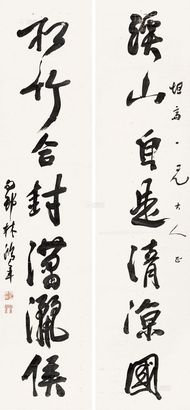 溪山自是清涼國
坦高一兄大人正
松竹合封瀟灑侯
林鴻年